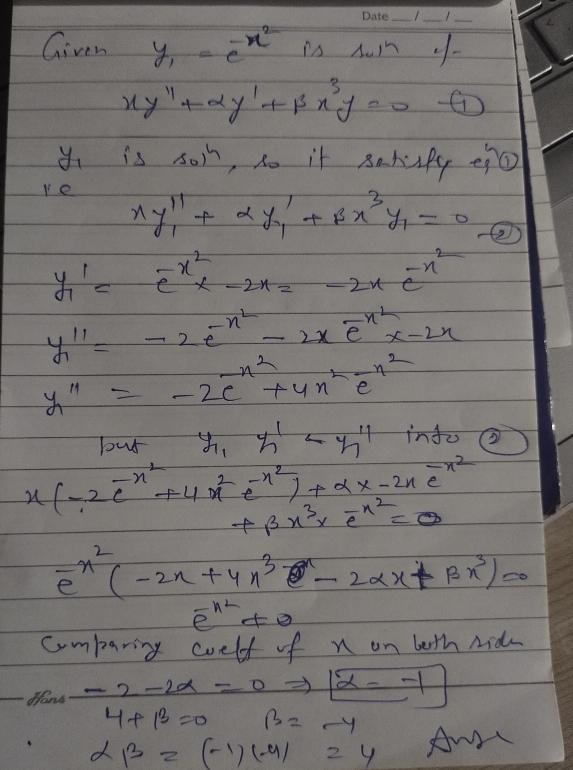 Date __/__/__
Given y₁ = e^-x² is soln of
xy'' + αy' + βx³y = 0 —①
y₁ is soln, so it satisfy eqn ①
ie
xy₁'' + αy₁' + βx³y₁ = 0 —②
y₁' = e^-x² × -2x = -2x e^-x²
y₁'' = -2e^-x² - 2x e^-x² × -2x
y₁'' = -2e^-x² + 4x² e^-x²
put y₁, y₁' & y₁'' into ②
x(-2e^-x² + 4x² e^-x²) + α × -2x e^-x²
+ βx³ × e^-x² = 0
e^-x² (-2x + 4x³ - 2αx + βx³) = 0
e^-x² ≠ 0
Comparing coeff of x on both side
Hans -2 - 2α = 0 ⇒ α = -1
4 + β = 0 β = -4
αβ = (-1)(-4) = 4 Ans